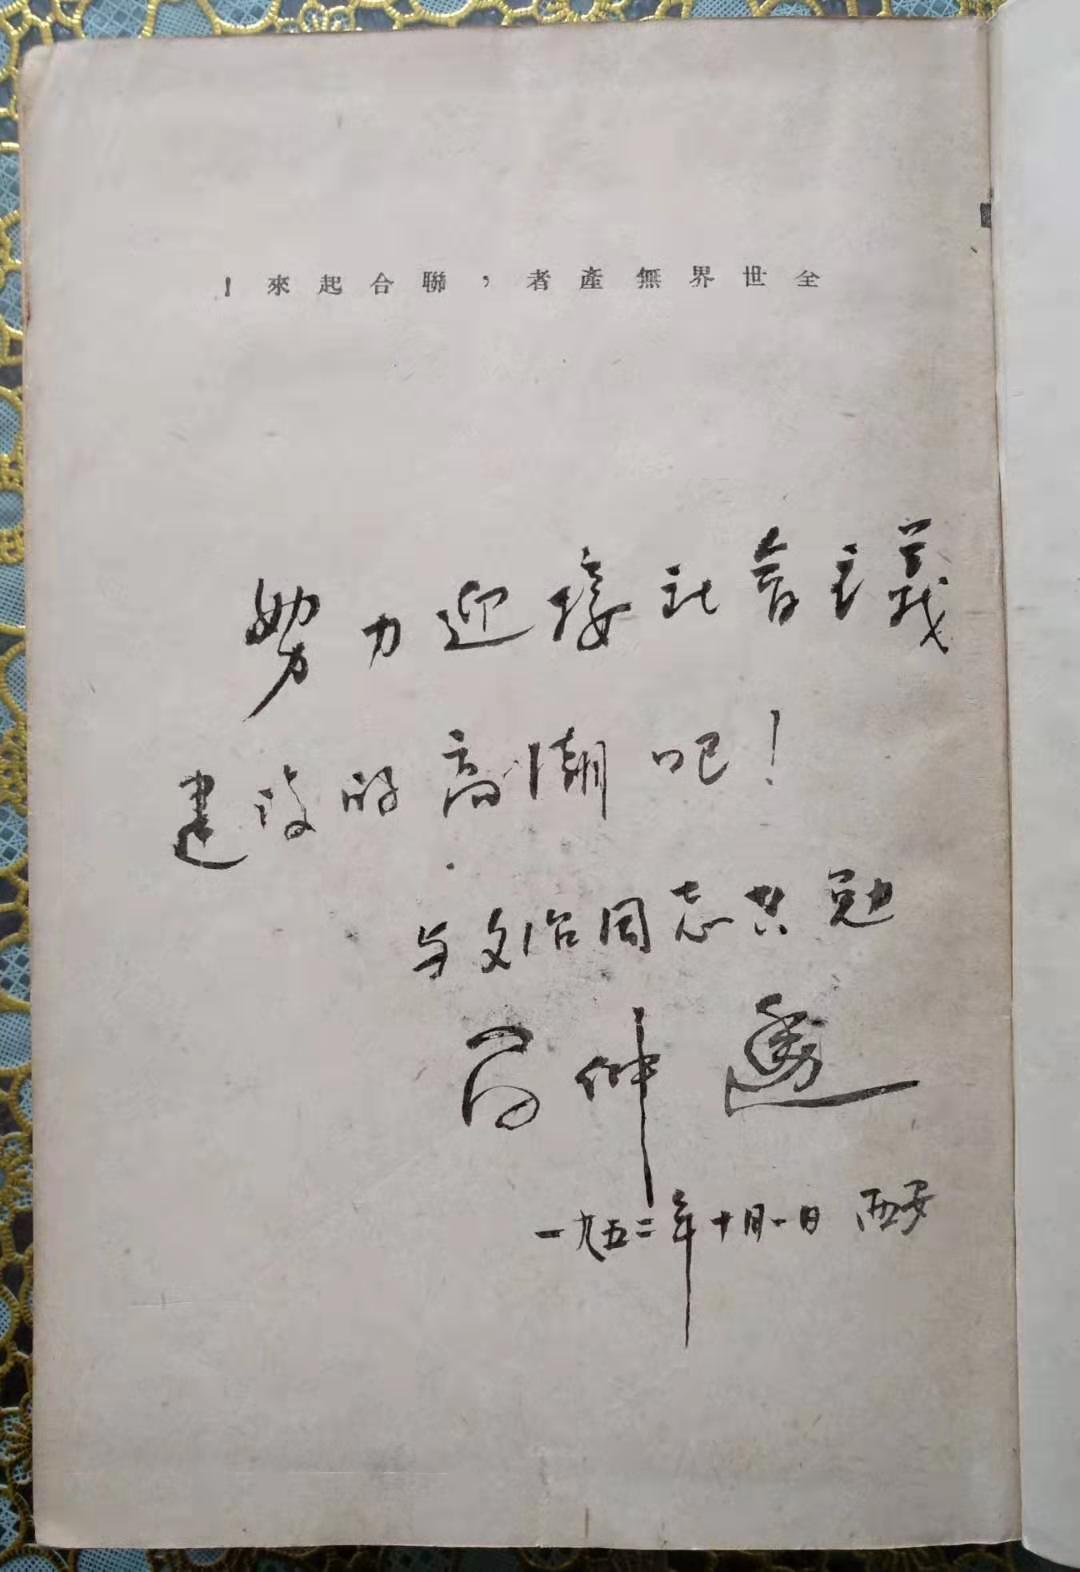 全世界無產者，聯合起來！
努力迎接社會主義
建设的高潮吧！
与文治同志共勉
仲
一九五二年十月一日 西安